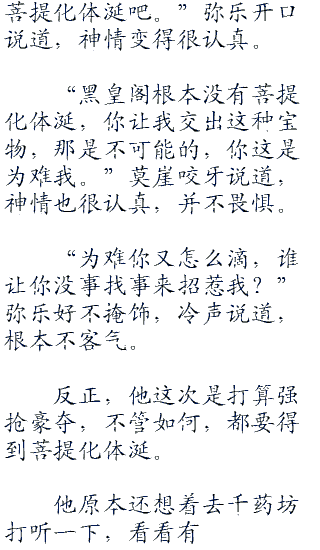 菩提化体涎吧。”弥乐开口
说道，神情变得很认真。
“黑皇阁根本没有菩提
化体涎，你让我交出这种宝
物，那是不可能的，你这是
为难我。”莫崖咬牙说道，
神情也很认真，并不畏惧。
“为难你又怎么滴，谁
让你没事找事来招惹我？”
弥乐好不掩饰，冷声说道，
根本不客气。
反正，他这次是打算强
抢豪夺，不管如何，都要得
到菩提化体涎。
他原本还想着去千药坊
打听一下，看看有